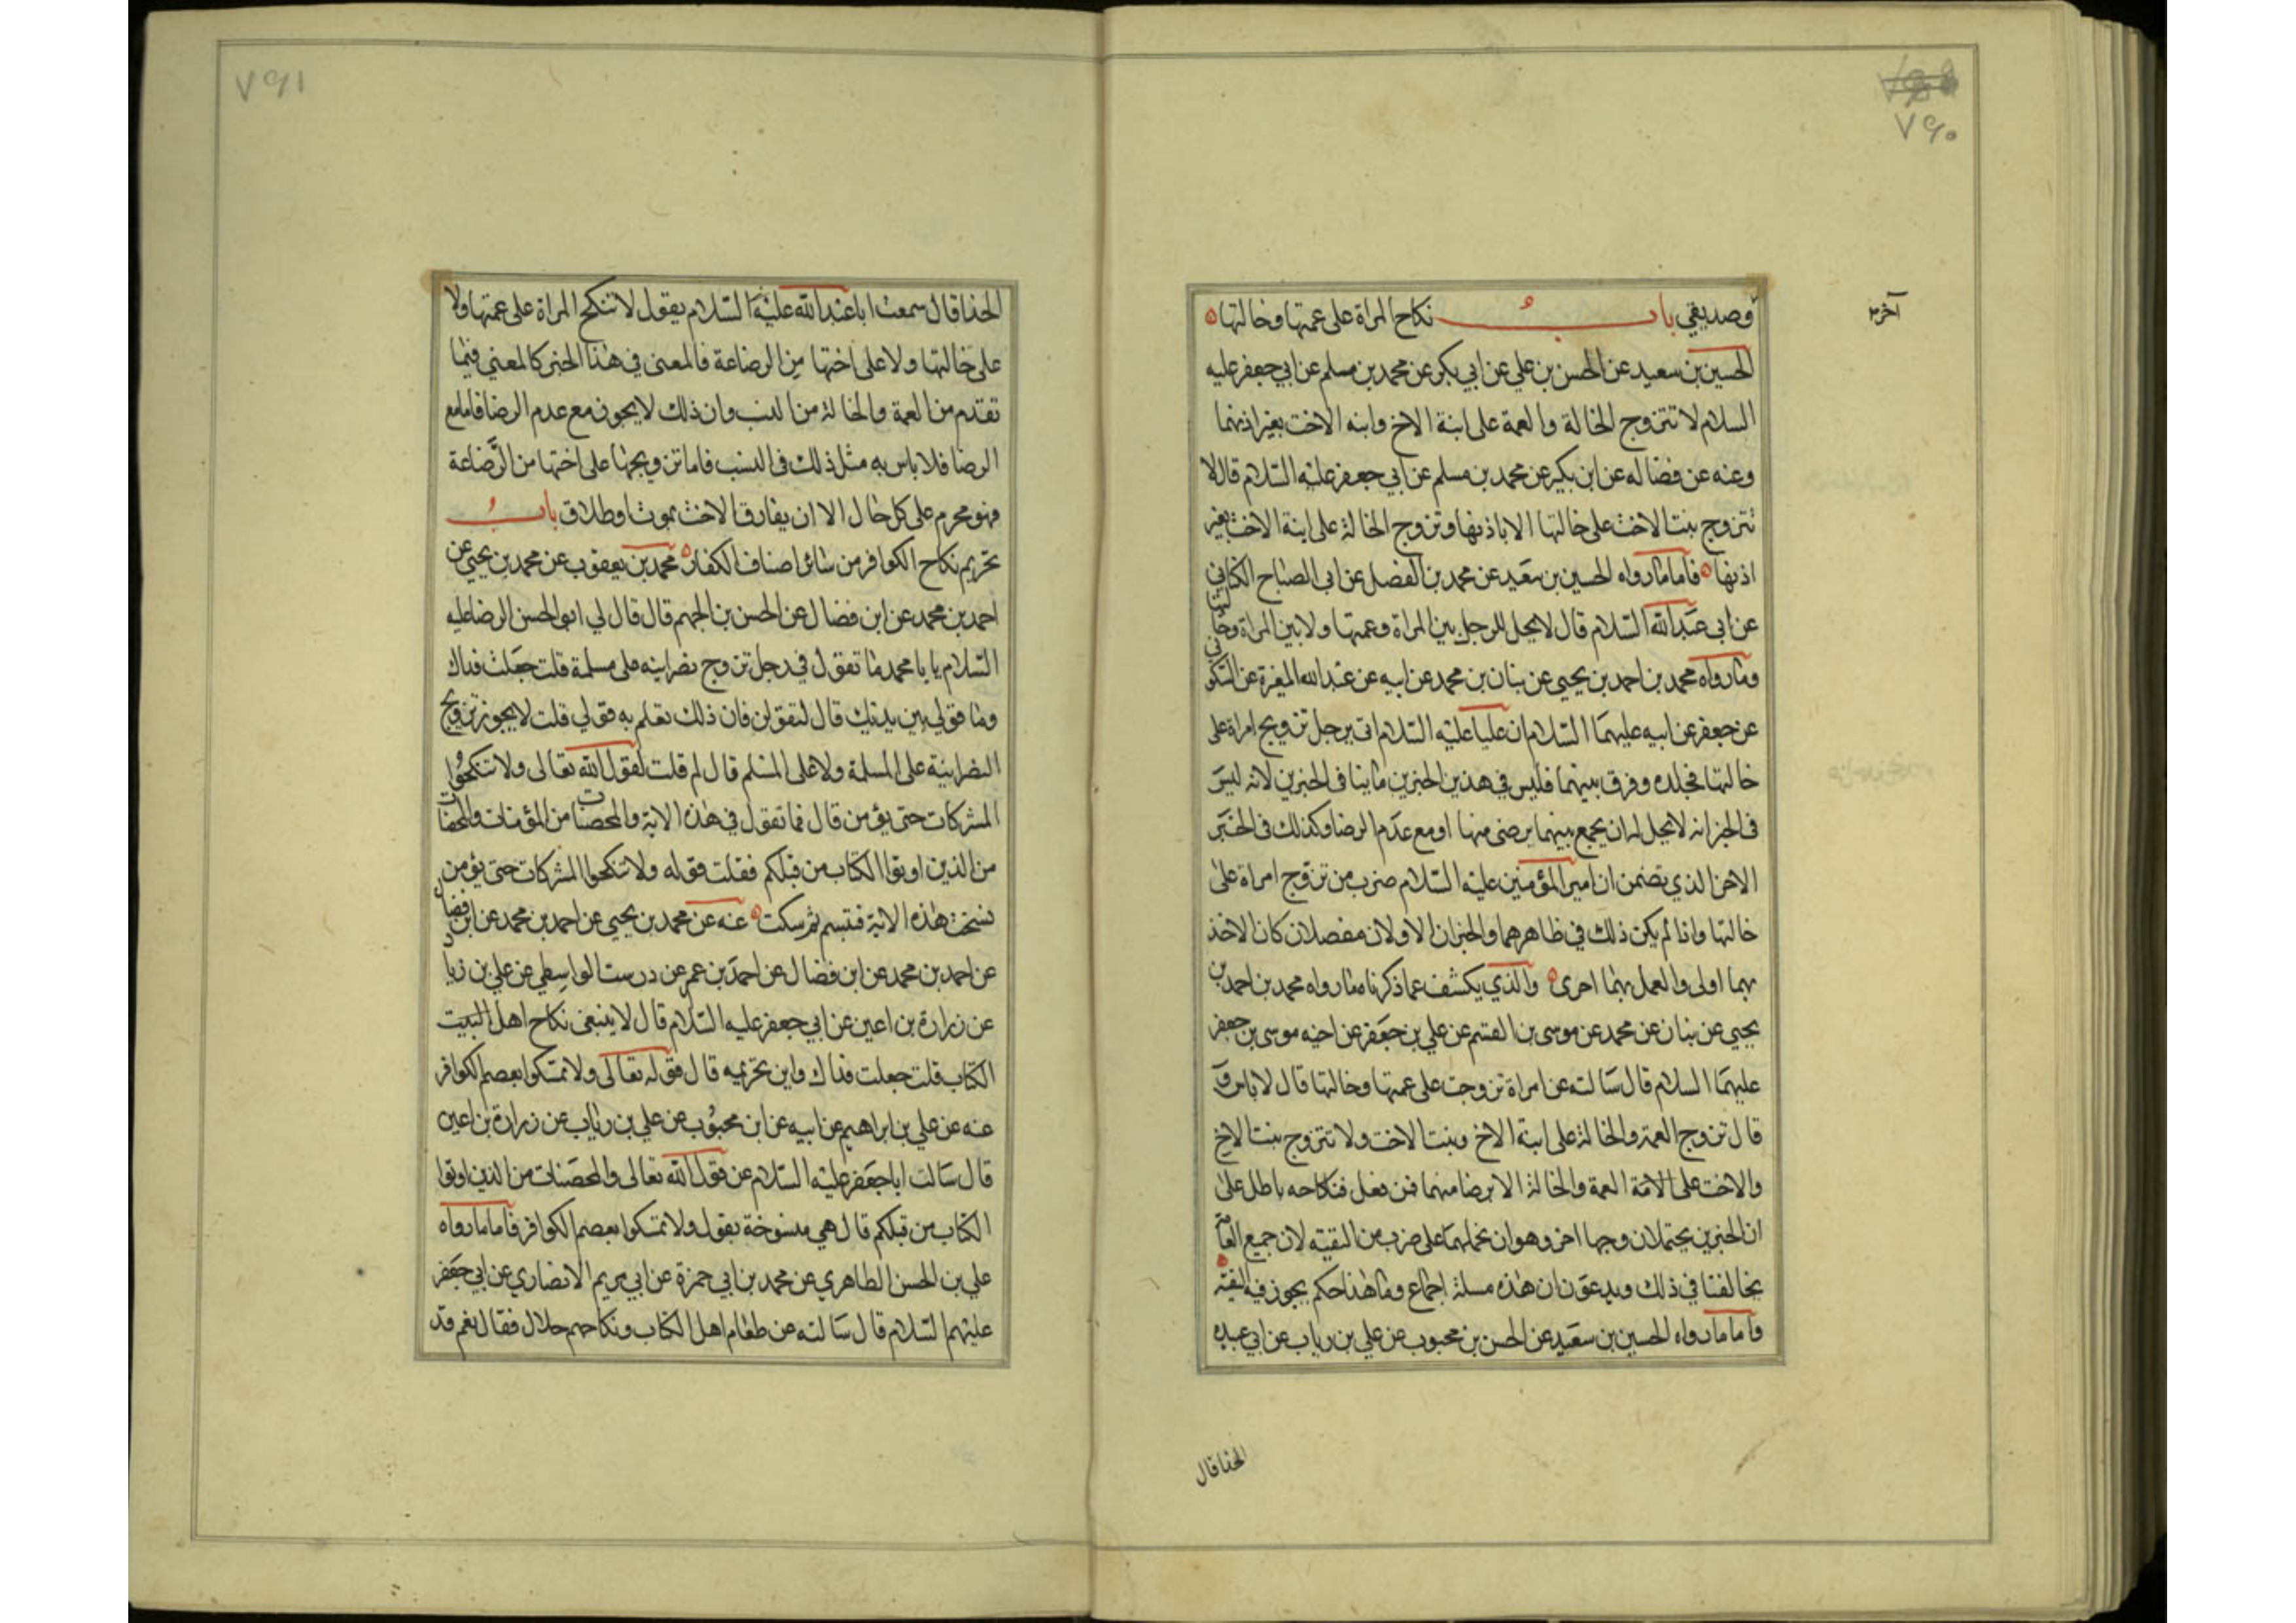 ٧٩٠
آخر
وصديقي باب نكاح المراة على عمتها وخالتها
الحسين بن سعيد عن الحسن بن علي عن ابي بكر عن محمد بن مسلم عن ابي جعفر عليه
السلام لا تتزوج الخالة والعمة على ابنة الاخ وابنه الاخت بغير اذنهما
وعنه عن فضاله عن ابن بكير عن محمد بن مسلم عن ابي جعفر عليه السلام قال لا
تتزوج بنت الاخت على خالتها الا باذنها وتزوج الخالة على ابنة الاخت بغير
اذنها فاما ما رواه الحسين بن سعيد عن محمد بن الفضل عن ابي الصباح الكناني
عن ابي عبد الله السلام قال لا يحل للرجل بين المراة وعمتها ولا بين المراة وخالتها
وما رواه محمد بن احمد بن يحيى عن بنان بن محمد عن ابيه عن عبد الله المغيرة عن السكوني
عن جعفر عن ابيه عليهما السلام ان عليا عليه السلام اتى برجل تزويج امراة على
خالتها فجلده وفرق بينهما فليس في هذين الخبرين ما ينافي الخبرين لانه ليس
في الخبر انه لا يحل له ان يجمع بينهما برضى منها او مع عدم الرضا وكذلك في الخبر
الاخر الذي تضمن ان امير المؤمنين عليه السلام ضرب من تزوج امراة على
خالتها واذا لم يكن ذلك في ظاهرهما والخبران الاولان مفصلان كان الاخذ
بهما اولى والعمل بهما احرى والذي يكشف عما ذكرناه ما رواه محمد بن احمد بن
يحيى عن بنان عن محمد عن موسى بن القسم عن علي بن جعفر عن اخيه موسى بن جعفر
عليهما السلام قال سالته عن امراة تزوجت على عمتها وخالتها قال لا باس و
قال تزوج العمة والخالة على ابنة الاخ وبنت الاخت ولا تتزوج بنت الاخ
والاخت على العمة والخالة الا برضا منهما فمن فعل فنكاحه باطل على
ان الخبرين يحتملان وجها اخر وهو ان نحملهما على ضرب من التقيه لان جميع العامة
يخالفنا في ذلك ويدعون ان هذه مسلة اجماع وما هذا حكم يجوز فيه التقية
فاما ما رواه الحسين بن سعيد عن الحسن بن محبوب عن علي بن رياب عن ابي عبيده
الحذا قال
٧٩١
الحذا قال سمعت ابا عبد الله عليه السلام يقول لا تنكح المراة على عمتها ولا
على خالتها ولا على اختها من الرضاعة فالمعنى في هذا الخبر كالمعنى فيما
تقدم من العمة والخالة من النسب وان ذلك لا يجوز مع عدم الرضا فاما مع
الرضا فلا باس به مثل ذلك في النسب فاما تزويجها على اختها من الرضاعة
فهو محرم على كل حال الا ان يفارق الاخت بموت او طلاق باب
تحريم نكاح الكوافر من سائر اصناف الكفار محمد بن يعقوب عن محمد بن يحيى عن
احمد بن محمد عن ابن فضال عن الحسن بن الجهم قال قال لي ابو الحسن الرضا عليه
السلام يا با محمد ما تقول في رجل تزوج نصرانيه على مسلمة قلت جعلت فداك
وما قولي بين يديك قال لتقولن فان ذلك تعلم به قولي قلت لا يجوز تزويج
النصرانية على المسلمة ولا على المسلم قال لم قلت لقول الله تعالى ولا تنكحوا
المشركات حتى يؤمن قال فما تقول في هذه الاية والمحصنات من المؤمنات والمحصنات
من الذين اوتوا الكتاب من قبلكم فقلت قوله ولا تنكحوا المشركات حتى يؤمن
نسخت هذه الاية فتبسم ثم سكت عنه عن محمد بن يحيى عن احمد بن محمد عن ابن فضال
عن احمد بن محمد عن ابن فضال عن احمد بن عمر عن درست الواسطي عن علي بن زياد
عن زرارة بن اعين عن ابي جعفر عليه السلام قال لا ينبغي نكاح اهل البيت
الكتاب قلت جعلت فداك واين تحريمه قال قوله تعالى ولا تمسكوا بعصم الكوافر
عنه عن علي بن ابراهيم عن ابيه عن ابن محبوب عن علي بن رياب عن زرارة بن اعين
قال سالت ابا جعفر عليه السلام عن قول الله تعالى والمحصنات من الذين اوتوا
الكتاب من قبلكم قال هي منسوخة بقوله ولا تمسكوا بعصم الكوافر فاما ما رواه
علي بن الحسن الطاهري عن محمد بن ابي حمزة عن ابي مريم الانصاري عن ابي جعفر
عليهم السلام قال سالته عن طعام اهل الكتاب ونكاحهم حلال فقال نعم قد